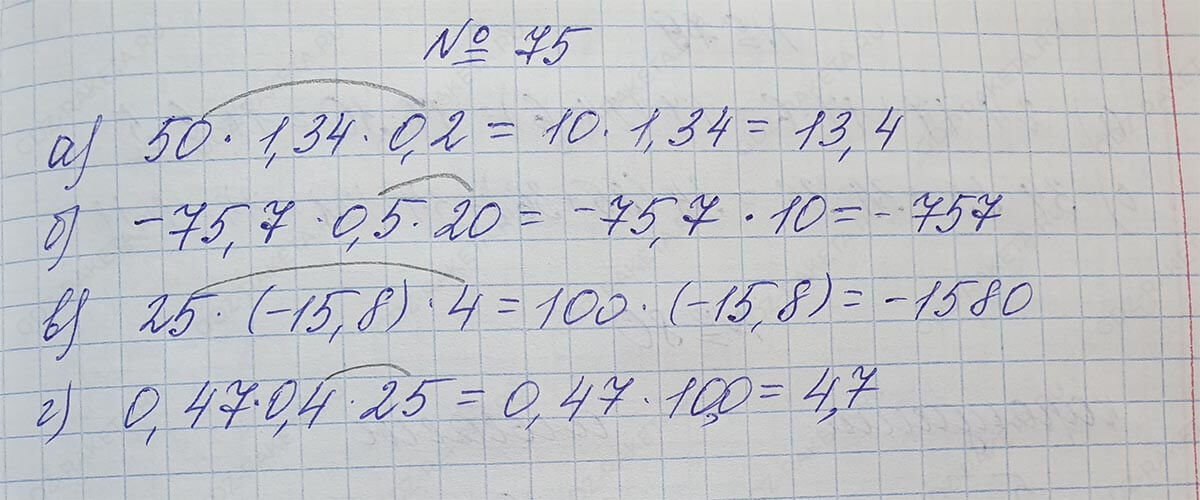 № 75
а) 50 · 1,34 · 0,2 = 10 · 1,34 = 13,4
б) -75,7 · 0,5 · 20 = -75,7 · 10 = -757
в) 25 · (-15,8) · 4 = 100 · (-15,8) = -1580
г) 0,47 · 0,4 · 25 = 0,47 · 10,0 = 4,7